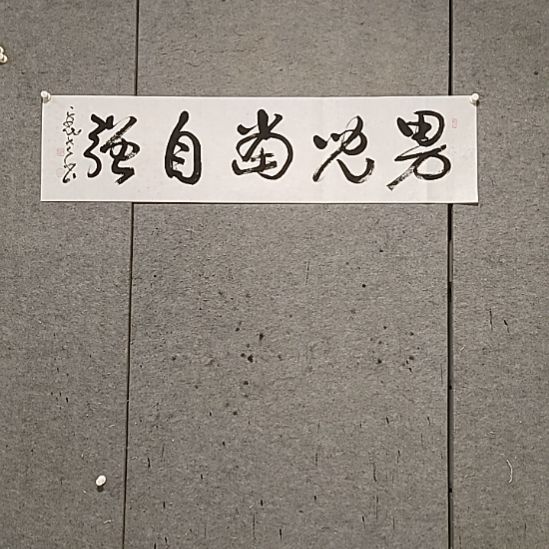 男儿当自强